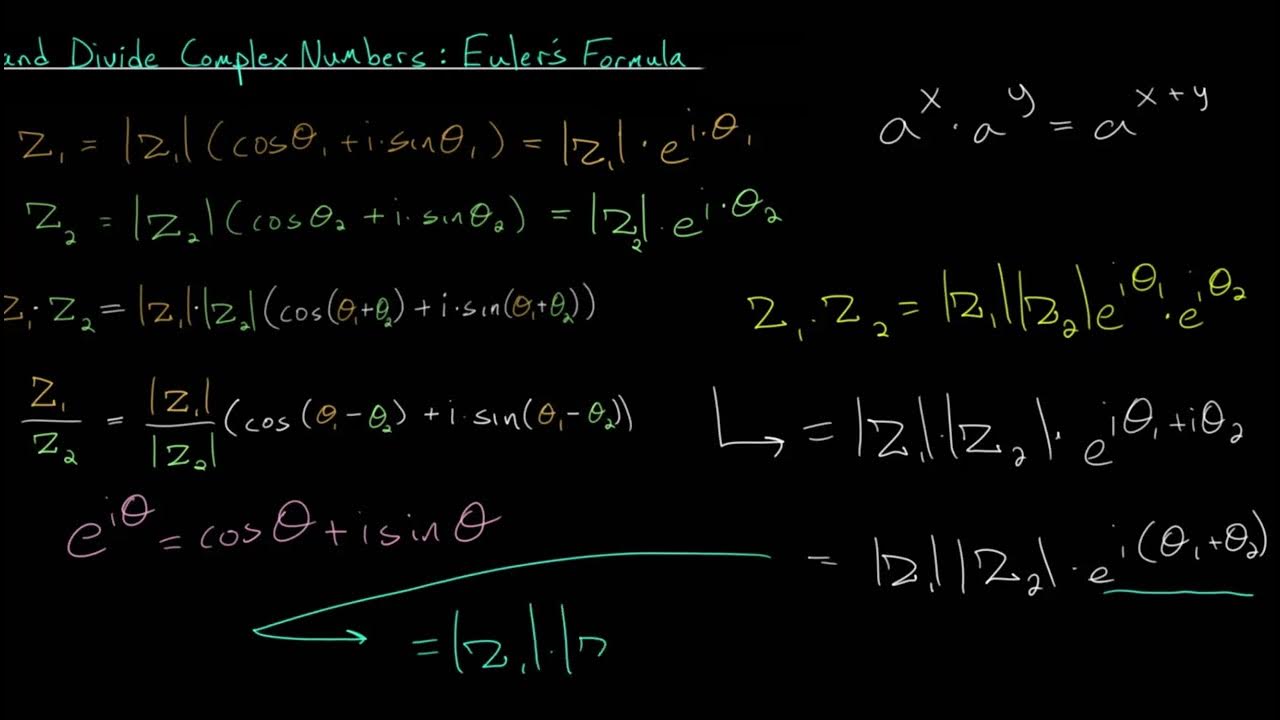 and Divide Complex Numbers: Euler's Formula
a^x · a^y = a^{x+y}
z₁ = |z₁|(cosθ₁ + i·sinθ₁) = |z₁|·e^{i·θ₁}
z₂ = |z₂|(cosθ₂ + i·sinθ₂) = |z₂|·e^{i·θ₂}
z₁·z₂ = |z₁|·|z₂|(cos(θ₁+θ₂) + i·sin(θ₁+θ₂))
z₁/z₂ = |z₁|/|z₂| (cos(θ₁-θ₂) + i·sin(θ₁-θ₂))
e^{iθ} = cosθ + i sinθ
z₁·z₂ = |z₁||z₂|e^{iθ₁}·e^{iθ₂}
= |z₁|·|z₂|·e^{iθ₁+iθ₂}
= |z₁||z₂|·e^{i(θ₁+θ₂)}
= |z₁|·|z